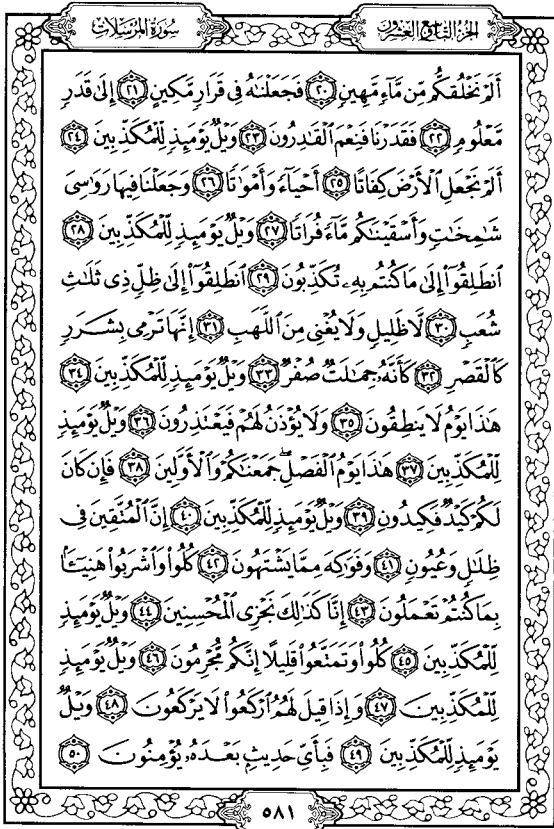 سُورَةُ المُرْسَلَات
الجُزْءُ التَّاسِعُ وَالعِشْرُونَ
أَلَمْ نَخْلُقكُّم مِّن مَّآءٍ مَّهِينٍ ٢٠ فَجَعَلْنَٰهُ فِى قَرَارٍ مَّكِينٍ ٢١ إِلَىٰ قَدَرٍ
مَّعْلُومٍ ٢٢ فَقَدَرْنَا فَنِعْمَ ٱلْقَٰدِرُونَ ٢٣ وَيْلٌ يَوْمَئِذٍ لِّلْمُكَذِّبِينَ ٢٤
أَلَمْ نَجْعَلِ ٱلْأَرْضَ كِفَاتًا ٢٥ أَحْيَآءً وَأَمْوَٰتًا ٢٦ وَجَعَلْنَا فِيهَا رَوَٰسِىَ
شَٰمِخَٰتٍ وَأَسْقَيْنَٰكُم مَّآءً فُرَاتًا ٢٧ وَيْلٌ يَوْمَئِذٍ لِّلْمُكَذِّبِينَ ٢٨
ٱنطَلِقُوٓا۟ إِلَىٰ مَا كُنتُم بِهِۦ تُكَذِّبُونَ ٢٩ ٱنطَلِقُوٓا۟ إِلَىٰ ظِلٍّ ذِى ثَلَٰثِ
شُعَبٍ ٣٠ لَّا ظَلِيلٍ وَلَا يُغْنِى مِنَ ٱللَّهَبِ ٣١ إِنَّهَا تَرْمِى بِشَرَرٍ
كَٱلْقَصْرِ ٣٢ كَأَنَّهُۥ جِمَٰلَتٌ صُفْرٌ ٣٣ وَيْلٌ يَوْمَئِذٍ لِّلْمُكَذِّبِينَ ٣٤
هَٰذَا يَوْمُ لَا يَنطِقُونَ ٣٥ وَلَا يُؤْذَنُ لَهُمْ فَيَعْتَذِرُونَ ٣٦ وَيْلٌ يَوْمَئِذٍ
لِّلْمُكَذِّبِينَ ٣٧ هَٰذَا يَوْمُ ٱلْفَصْلِ ۖ جَمَعْنَٰكُمْ وَٱلْأَوَّلِينَ ٣٨ فَإِن كَانَ
لَكُمْ كَيْدٌ فَكِيدُونِ ٣٩ وَيْلٌ يَوْمَئِذٍ لِّلْمُكَذِّبِينَ ٤٠ إِنَّ ٱلْمُتَّقِينَ فِى
ظِلَٰلٍ وَعُيُونٍ ٤١ وَفَوَٰكِهَ مِمَّا يَشْتَهُونَ ٤٢ كُلُوا۟ وَٱشْرَبُوا۟ هَنِيٓـًٔۢا
بِمَا كُنتُمْ تَعْمَلُونَ ٤٣ إِنَّا كَذَٰلِكَ نَجْزِى ٱلْمُحْسِنِينَ ٤٤ وَيْلٌ يَوْمَئِذٍ
لِّلْمُكَذِّبِينَ ٤٥ كُلُوا۟ وَتَمَتَّعُوا۟ قَلِيلًا إِنَّكُم مُّجْرِمُونَ ٤٦ وَيْلٌ يَوْمَئِذٍ
لِّلْمُكَذِّبِينَ ٤٧ وَإِذَا قِيلَ لَهُمُ ٱرْكَعُوا۟ لَا يَرْكَعُونَ ٤٨ وَيْلٌ
يَوْمَئِذٍ لِّلْمُكَذِّبِينَ ٤٩ فَبِأَىِّ حَدِيثٍۭ بَعْدَهُۥ يُؤْمِنُونَ ٥٠
٥٨١